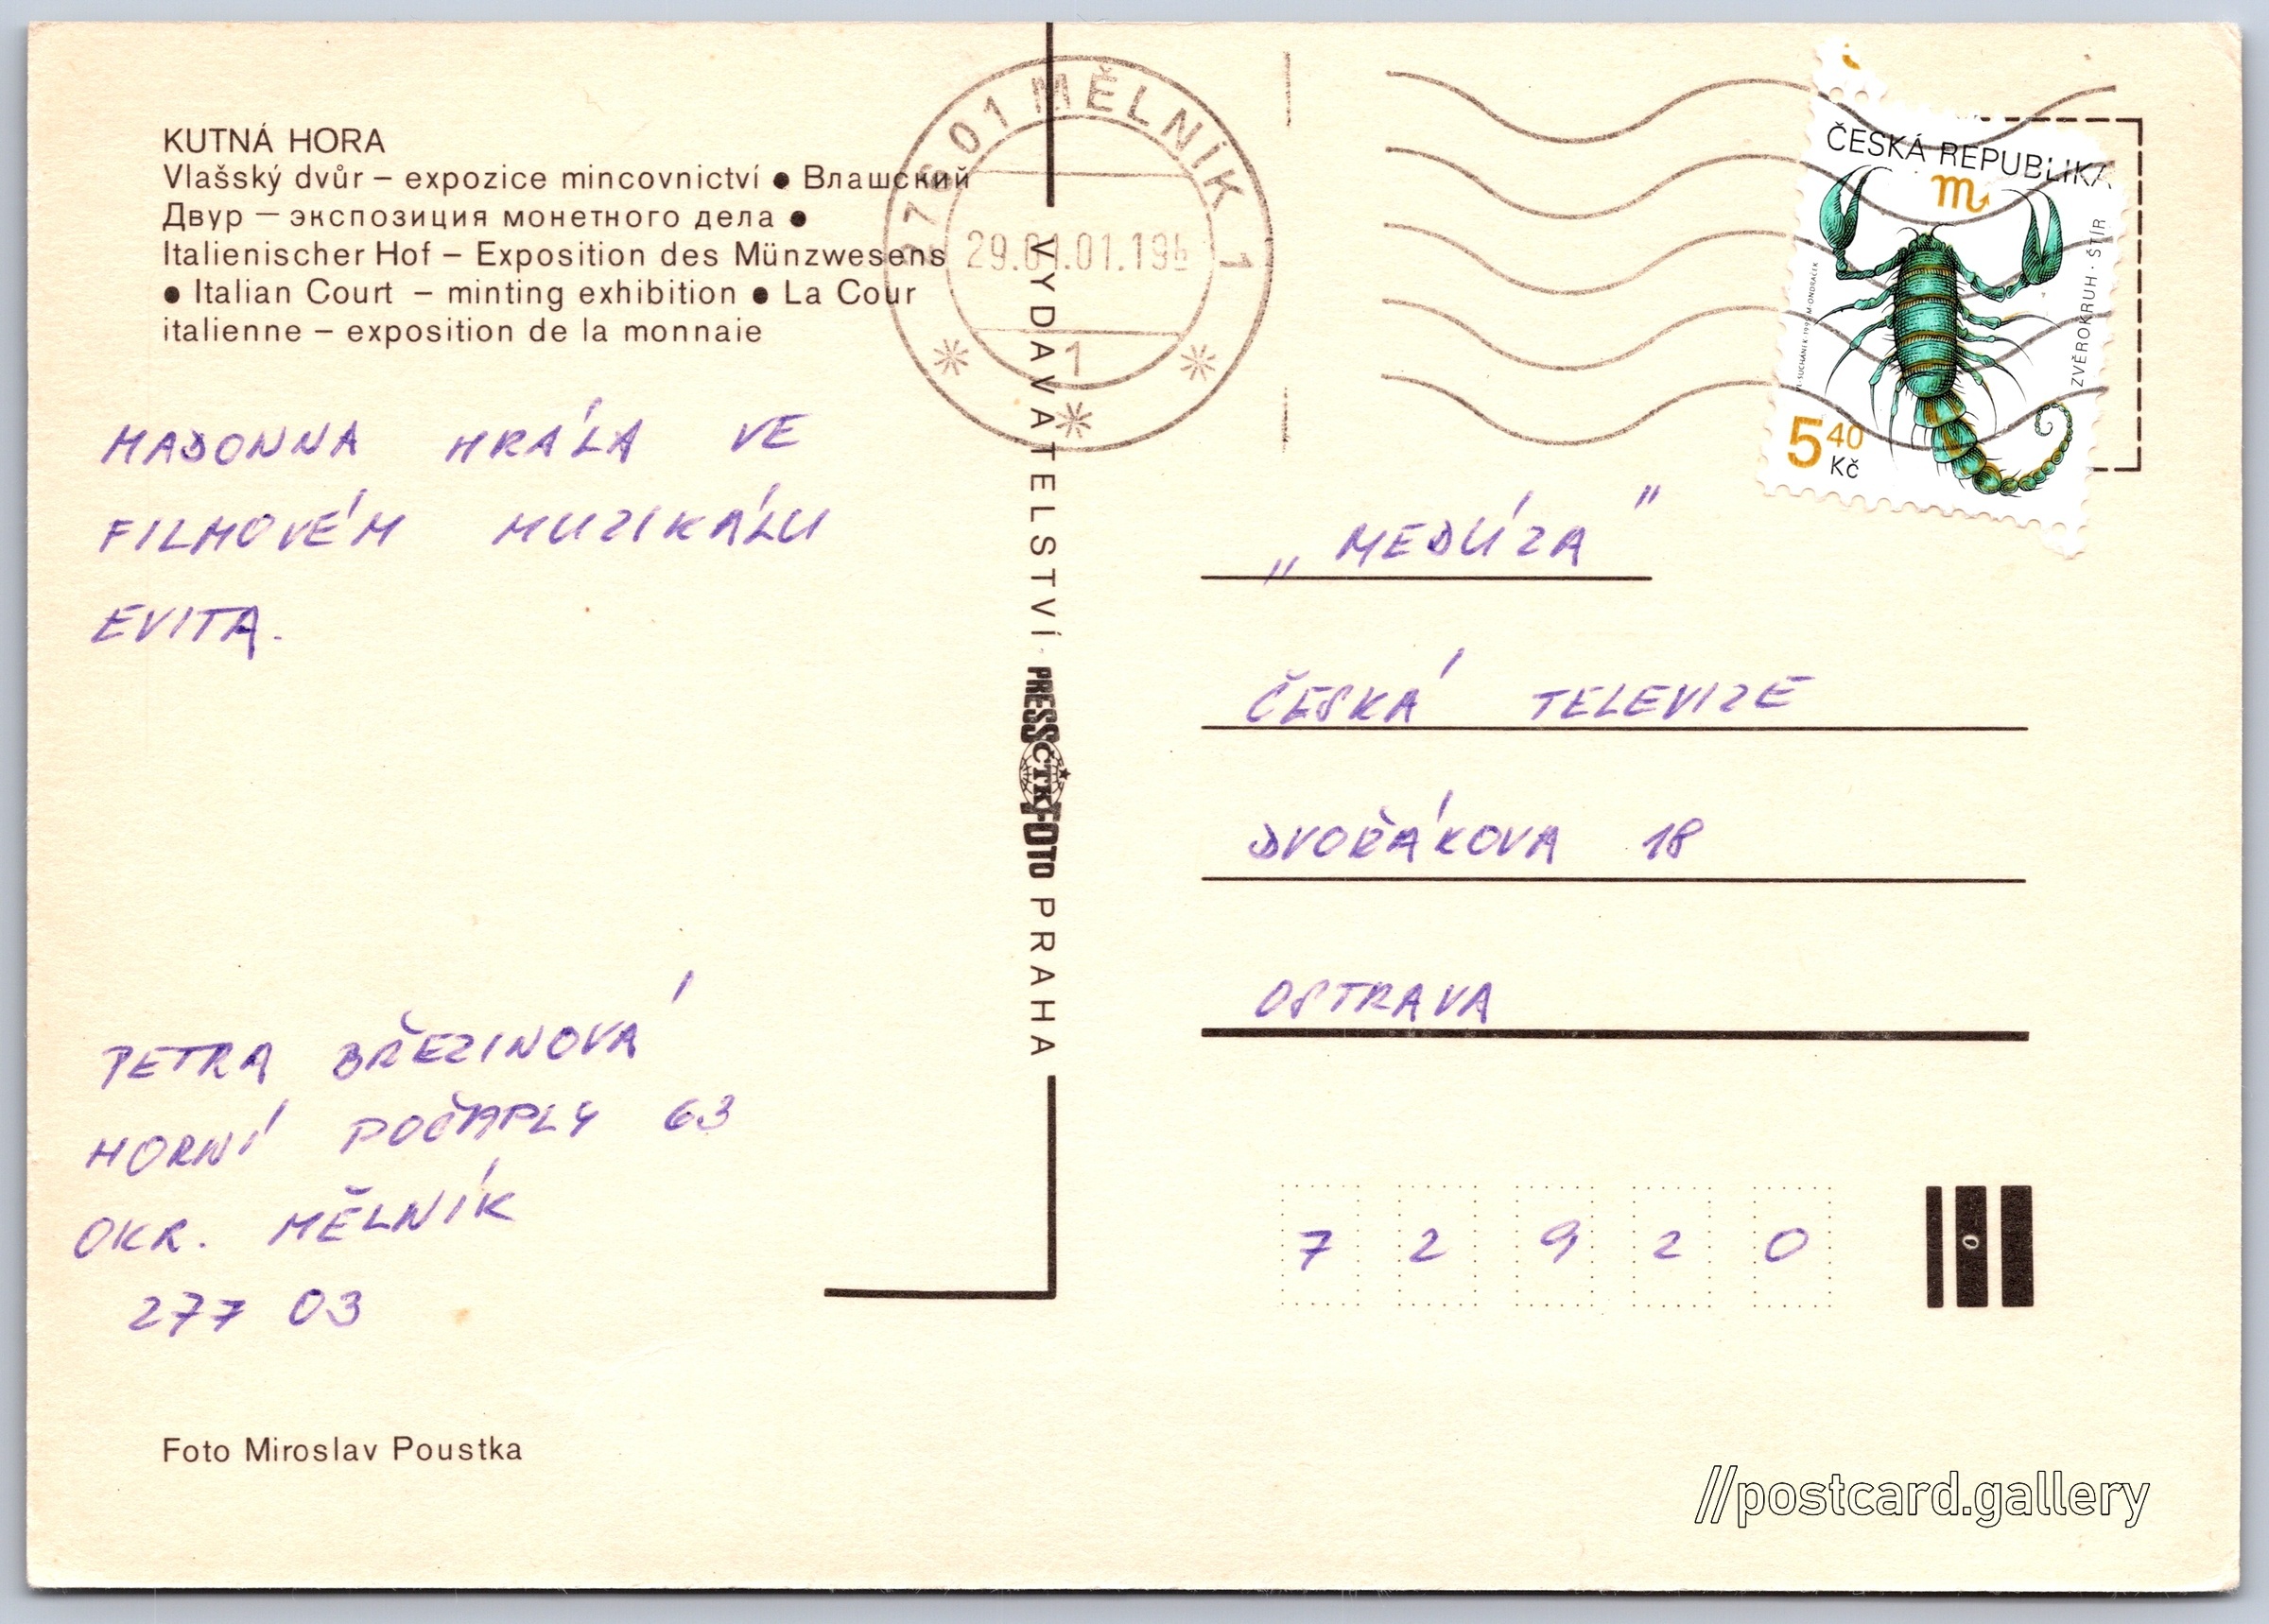 KUTNÁ HORA
Vlašský dvůr – expozice mincovnictví ● Влашский
Двур – экспозиция монетного дела ●
Italienischer Hof – Exposition des Münzwesens
● Italian Court – minting exhibition ● La Cour
italienne – exposition de la monnaie
MADONNA HRÁLA VE
FILMOVÉM MUZIKÁLU
EVITA.
PETRA BŘEZINOVÁ
HORNÍ POČAPLY 63
OKR. MĚLNÍK
277 03
Foto Miroslav Poustka
VYDAVATELSTVÍ PRESSFOTO PRAHA
ČTK
276 01 MĚLNÍK 1
1
ČESKÁ REPUBLIKA
ZVĚROKRUH · ŠTÍR
5 40
Kč
„MEDÚZA"
ČESKÁ TELEVIZE
DVOŘÁKOVA 18
OSTRAVA
7 2 9 2 0
0
//postcard.gallery